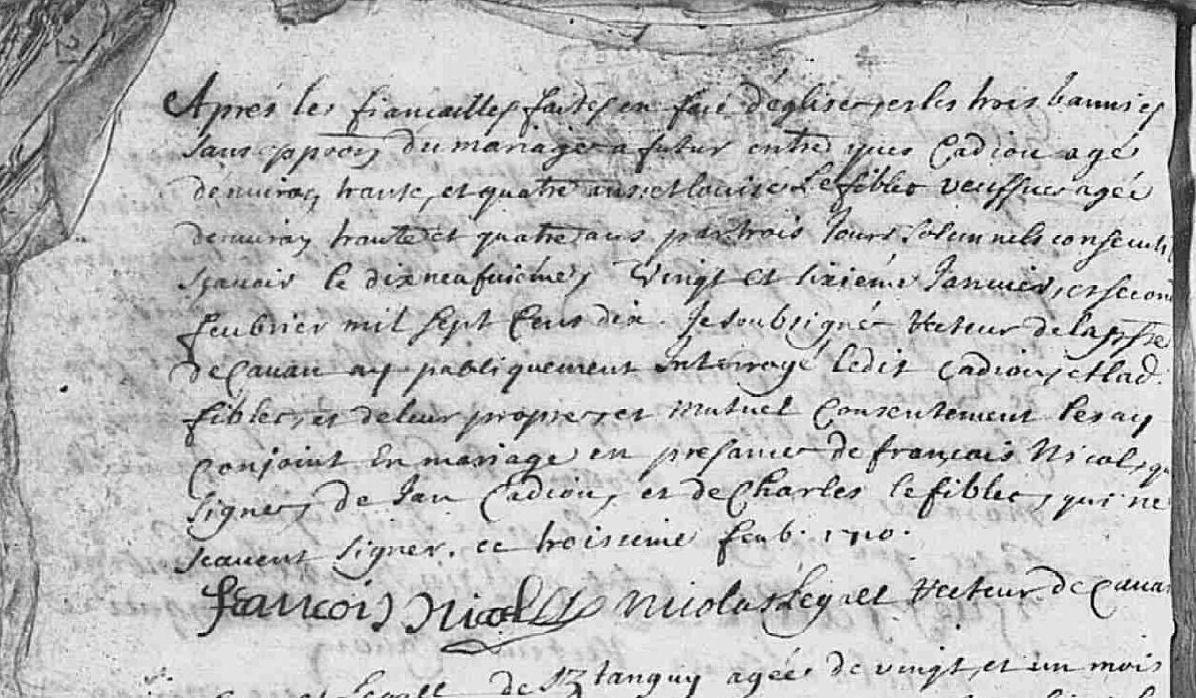 Aprés les fiancailles faites en face d'eglise, et les trois bannies
sans oppoōn du mariage a futur entre yves Cadiou agé
d'enuiron trante, et quatre ans: et louise Le fiblec veuffue agée
denuiron trante et quatre ans par trois Jours solemnels consecuti
sçauoir le dix neufuiéme, Vingt et sixiéme Januier, et second
feubrier mil sept Cens dix. Je soubsigné Recteur de la pſſe
de Cauan ay publiquement Interrogé ledit Cadiou, et lad.
fiblec, et de leur propre, et mutuel Consentement les ay
Conjoint En mariage en presance de françois Nicol, qui
signe, de Jan Cadiou, et de Charles le fiblec, qui ne
scauent signer. ce troissieme feub. 1710.
françois Nicol Nicolas Legall Recteur de Cauan
Legall de tanguy agée de vingt, et un mois